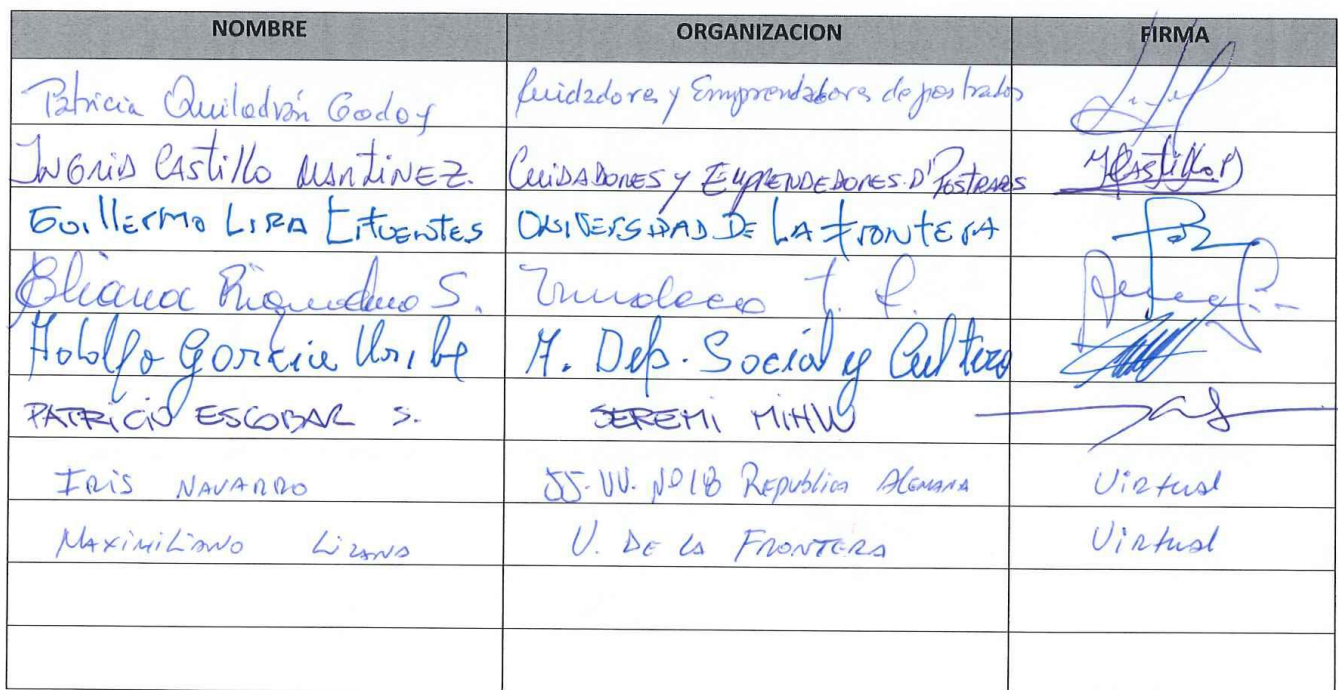 NOMBRE ORGANIZACION FIRMA
Patricia Quilodrán Godoy Cuidadores y Emprendedores de postrados
INGRID CASTILLO MARTINEZ. CUIDADORES Y EMPRENDEDORES D' POSTRADOS
GUILLERMO LIRA CIFUENTES UNIVERSIDAD DE LA FRONTERA
Eliana Riquelme S.
Adolfo Uribe A. Dep. Social y Cultura
PATRICIO ESCOBAR S. SEREMI MINVU
IRIS NAVARRO JJ.VV. Nº18 REPUBLICA ALEMANA Virtual
MAXIMILIANO LIZANA U. DE LA FRONTERA Virtual